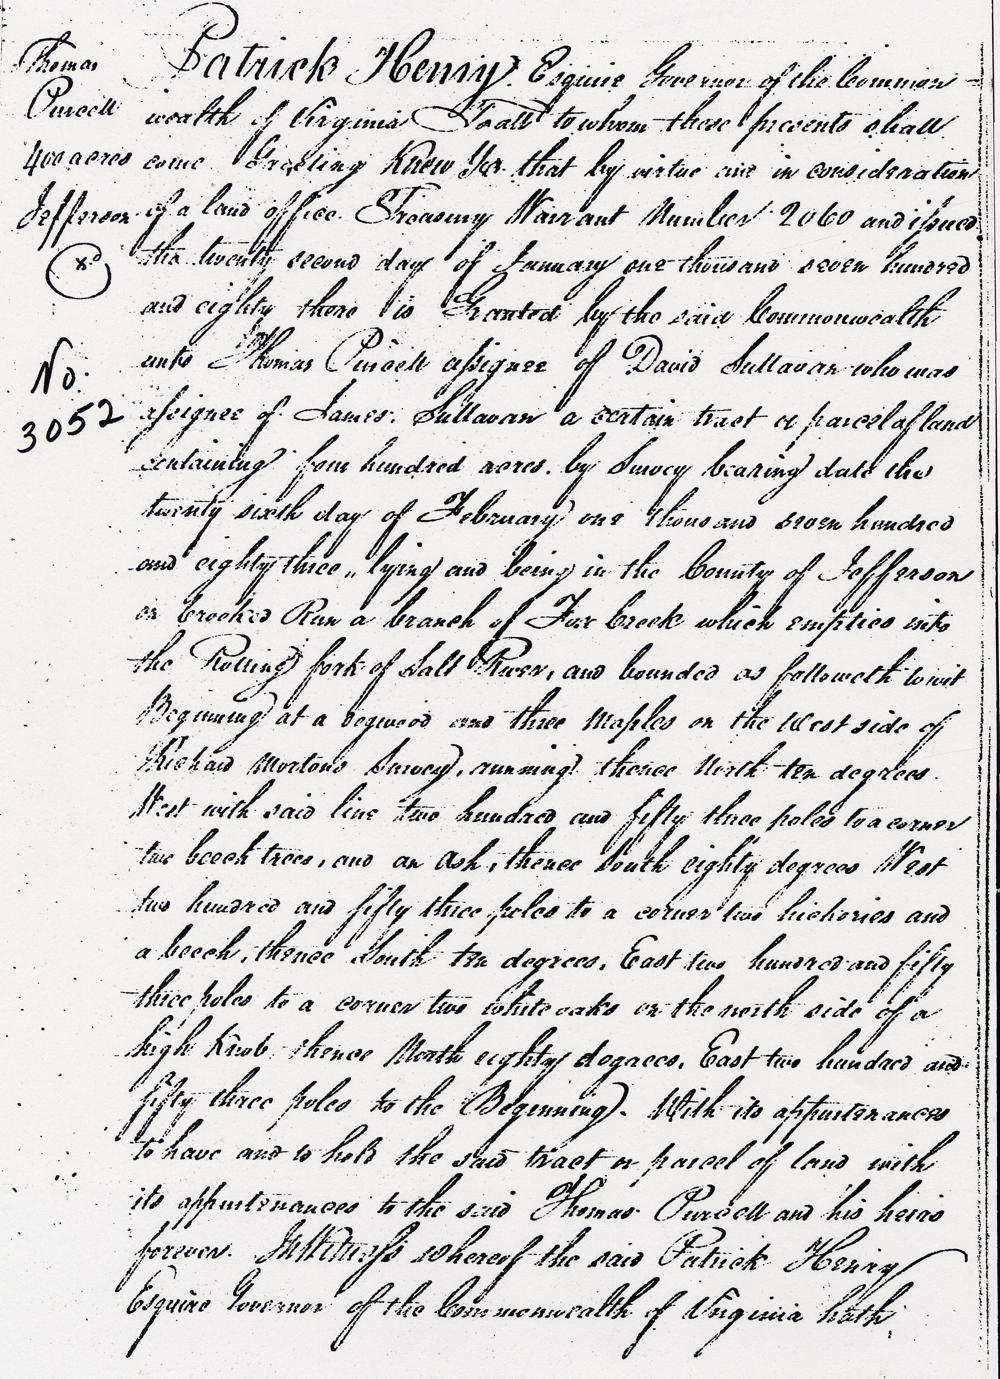 Thomas
Purcell
400 acres
Jefferson
xd
No.
3052
Patrick Henry Esquire Governor of the Common=
wealth of Virginia To all to whom these presents shall
come Greeting Know Ye that by virtue and in consideration
of a land office Treasury Warrant Number 2060 and issued
the twenty second day of January one thousand seven hundred
and eighty there is Granted by the said Commonwealth
unto Thomas Purcell assignee of David Sullavan who was
assignee of James Sullavan a certain tract or parcel of land
containing four hundred acres. by Survey bearing date the
twenty sixth day of February one thousand seven hundred
and eighty three,, lying and being in the County of Jefferson
on Crooked Run a branch of Fox Creek which empties into
the Rolling fork of Salt River, and bounded as followeth to wit
Beginning at a dogwood and three Maples on the West side of
Richard Mortons Survey, running thence North ten degrees
West with said line two hundred and fifty three poles to a corner
two beech trees, and an Ash, thence South eighty degrees West
two hundred and fifty three poles to a corner two hickories and
a beech, thence South ten degrees, East two hundred and fifty
three poles to a corner two white oaks on the north side of a
high Knob thence North eighty degrees, East two hundred and
fifty three poles to the Beginning. With its appurtenances
to have and to hold the said tract or parcel of land with
its appurtenances to the said Thomas Purcell and his heirs
forever. In Witness whereof the said Patrick Henry
Esquire Governor of the Commonwealth of Virginia hath